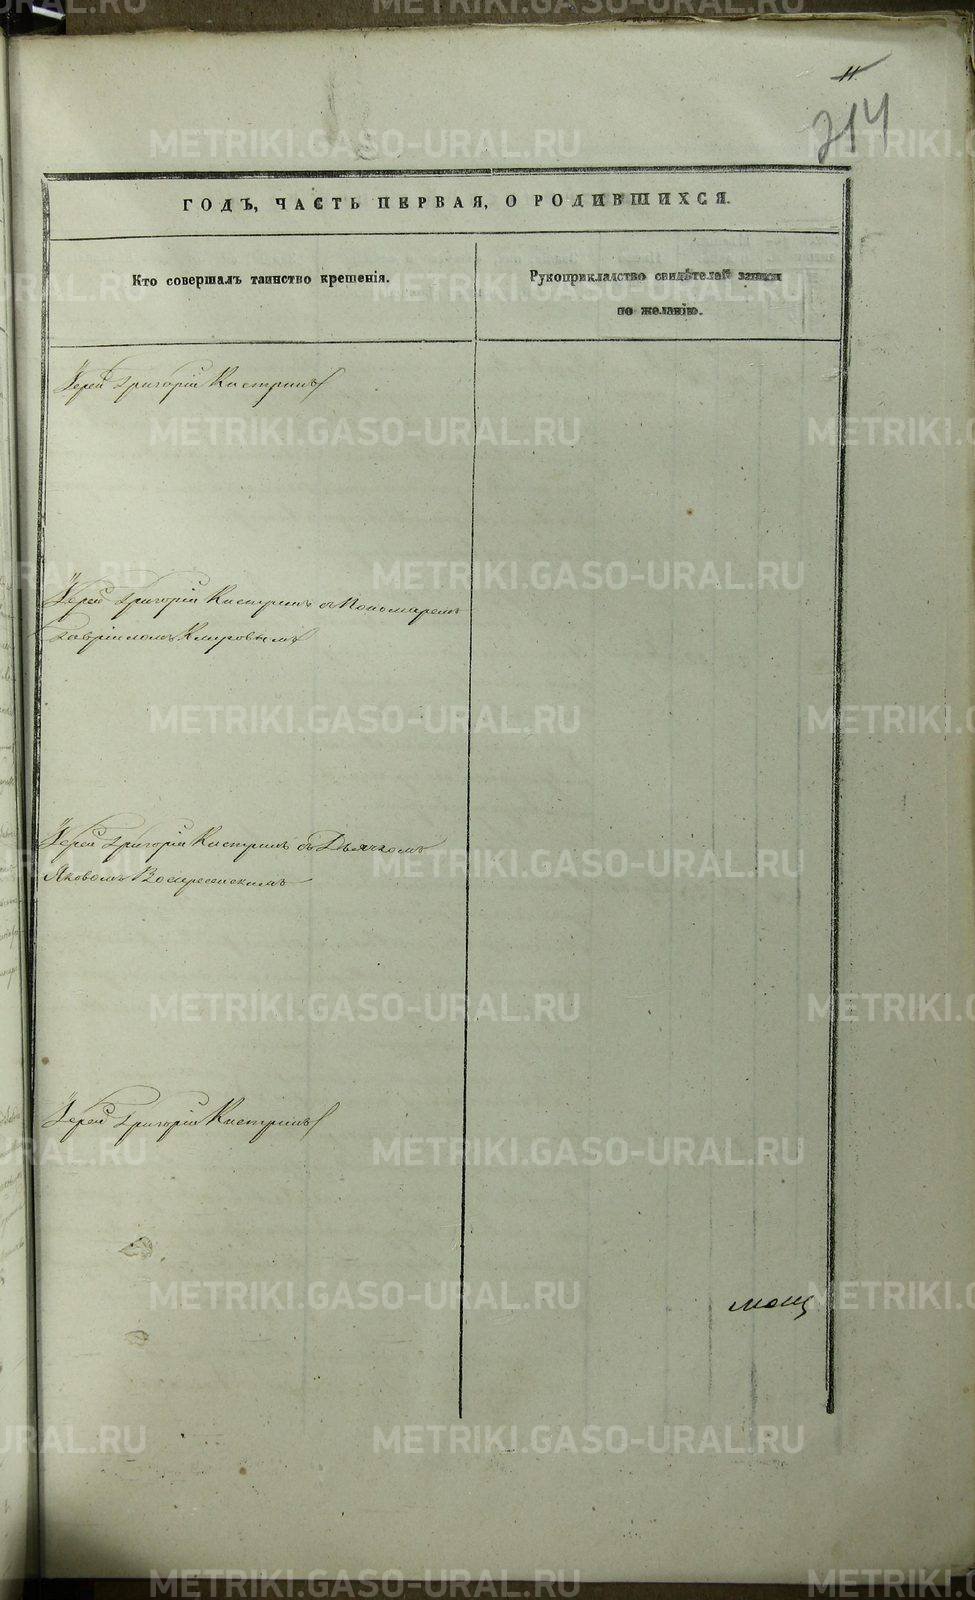 11.
214
ГОДЪ, ЧАСТЬ ПЕРВАЯ, О РОДИВШИХСЯ.
Кто совершалъ таинство крещенія.
Рукоприкладство свидѣтелей записи
по желанію.
Іерей Григорій Кистринъ
Іерей Григорій Кистринъ съ Пономаремъ
Гавріиломъ Кировымъ
Іерей Григорій Кистринъ съ Дьячкомъ
Яковомъ Воскресенскимъ
Іерей Григорій Кистринъ
METRIKI.GASO-URAL.RU